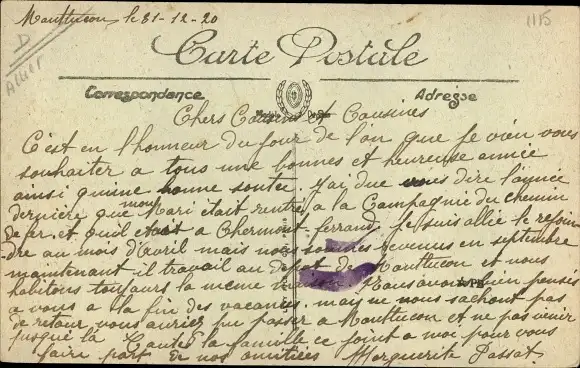 Montlucon le 31-12-20
1115
D
Allier
Carte Postale
Correspondance
Adresse
Chers Cousins et Cousines
C'est en l'honneur du jour de l'an que je vien vous
souhaiter a tous une bonnes et heureuse année
ainsi qu'une bonne santée. J'ai due vous dire l'année
dernière que mon Mari était rentré a la Compagnie du chemin
de fer et quil était a Clermont-ferrand, je suis allée le rejoin
dre au mois d'Avril mais nous sommes revenus en septembre
maintenant il travail au depot de Montlucon et nous
habitons toujours la même maison Nous avons bien penser
a vous a la fin des vacances, may ne nous sachant pas
de retour vous auriez pu passer a Montlucon et ne pas venir
jusque la la famille ce joint a moi pour vous
faire part de nos amitiées Marguerite Passat